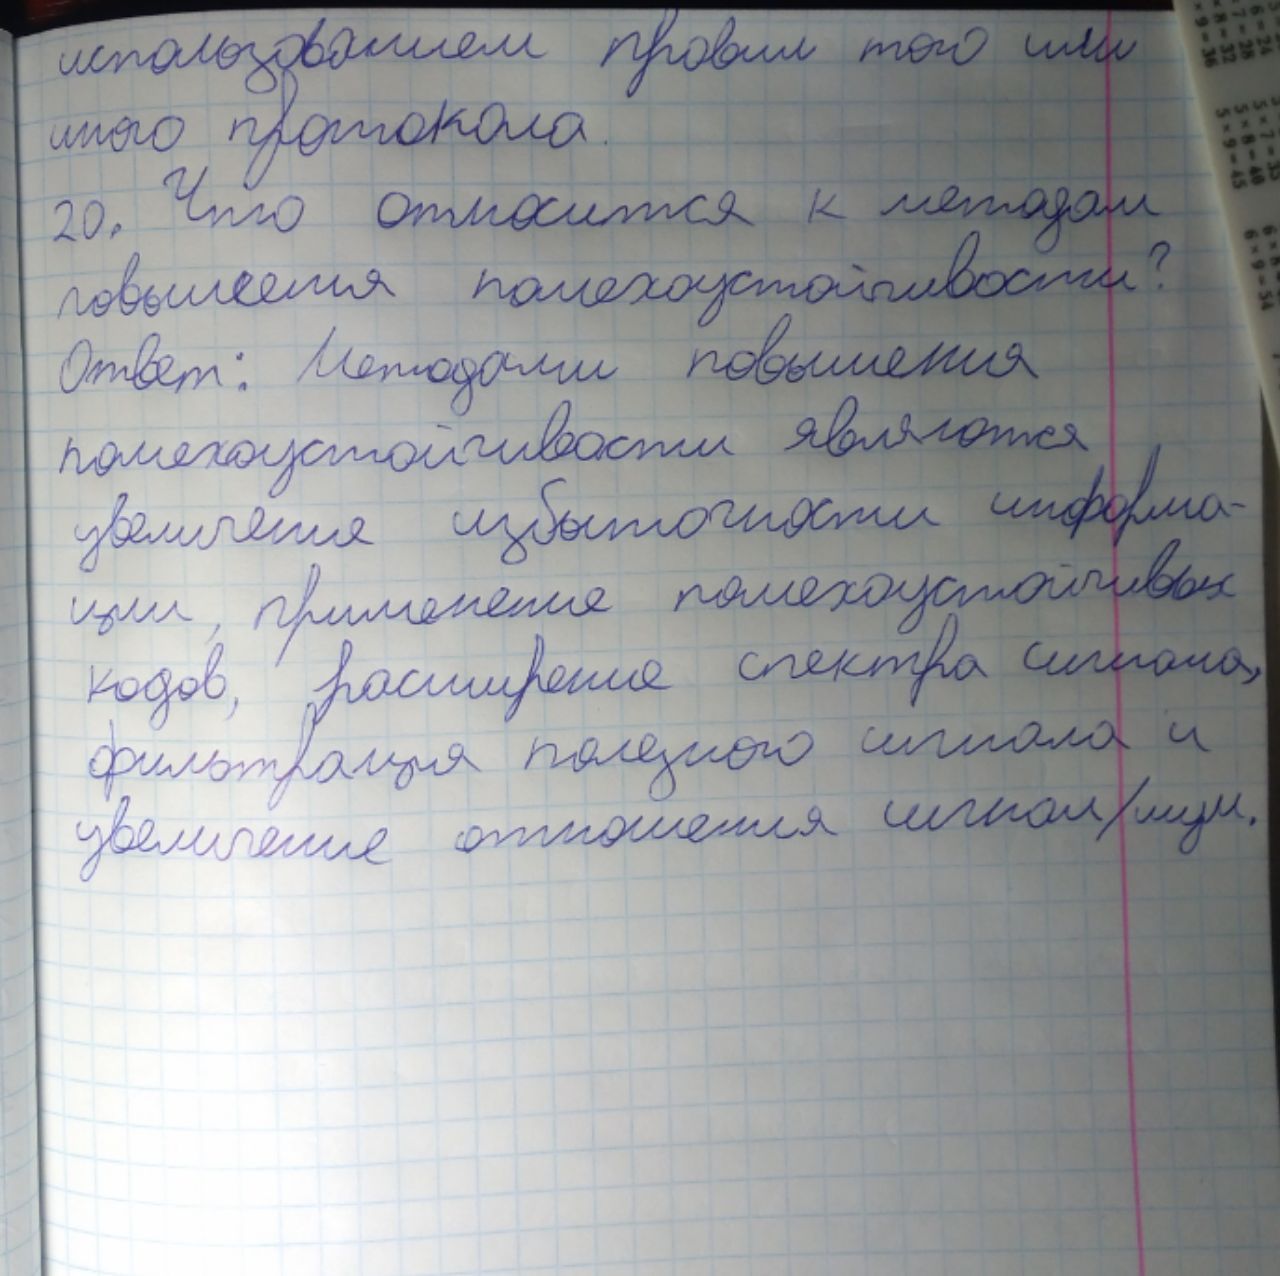 использованием правил того или
иного протокола.
20. Что относится к методам
повышения помехоустойчивости?
Ответ: Методами повышения
помехоустойчивости являются
увеличение избыточности информа-
ции, применение помехоустойчивых
кодов, расширение спектра сигнала,
фильтрация полезного сигнала и
увеличение отношения сигнал/шум.
5×7=35
5×8=40
5×9=45
6×9=54